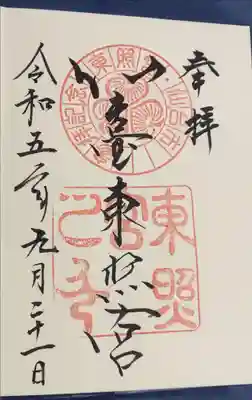 奉拝
仙臺東照宮
令和五年月二十一日
東照宮之印